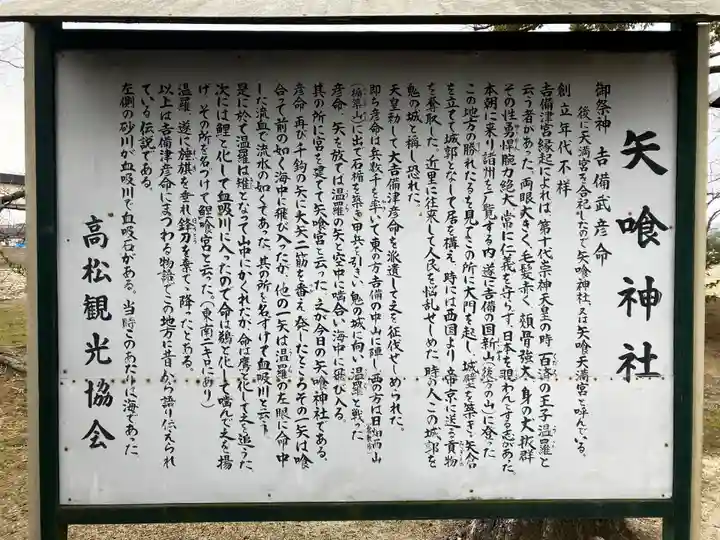 矢喰神社
御祭神 吉備武彦命
後に天満宮を合祀したので矢喰神社、又は矢喰天満宮と呼んでいる。
創立年代不祥
吉備津宮縁起によれば、第十代崇神天皇の時 百済の王子温羅と
云う者があった。両眼大きく、毛髪赤く、頬骨強大、身の丈抜群
その性勇悍腕力絶大、常に仁義を守らず、日本を覗わんとする志があった。
本朝に来り諸州を一覧する内、遂に吉備の国新山(後方の山)に登った
この地方の勝れたるを見てこの所に大門を起し、城壁を築き、矢合
を立てて城郭となして居を構え、時には西国より帝京に送る貢物
を奪取した。近里に往来して人民を悩乱せしめた。時の人この城郭を
鬼の城と称し恐れた。
天皇勅して大吉備津彦命を派遣して之を征伐せしめられた。
即ち彦命は兵数千を率いて東の方吉備の中山に陣し、西の方は日畑西山
(楯築山)に出て石楯を築き、甲兵を引きい、鬼の城に向い温羅と戦った
彦命、矢を放ては温羅の矢と空中に噛合い、海中に飛び入る。
其の所に宮を建てて矢喰宮と云った。之が今日の矢喰神社である。
彦命、再び千鈞の矢に大矢二筋を番え発したところその一矢は喰
合て前の如く海中に飛び入ったが、他の一矢は温羅の左眼に命中
した流血で流水の如くであった。其の所を名ずけて血吸川と云う
是に於て温羅は雉となって山中にかくれたが、命は鷹と化して之を追うた、
次には鯉と化して血吸川に入ったので命は鵜と化して噛んで之を揚
げ、その所を名づけて鯉喰宮と云った。(東南二キロにあり)
温羅、遂に旌旗を垂れ鋒刃を棄て、降ったとある。
以上は吉備津彦命にまつわる物語でこの地方に昔から語り伝えられ
ている伝説である。
左側の砂川が血吸川で血吸石がある。当時このあたりは海であった。
高松観光協会